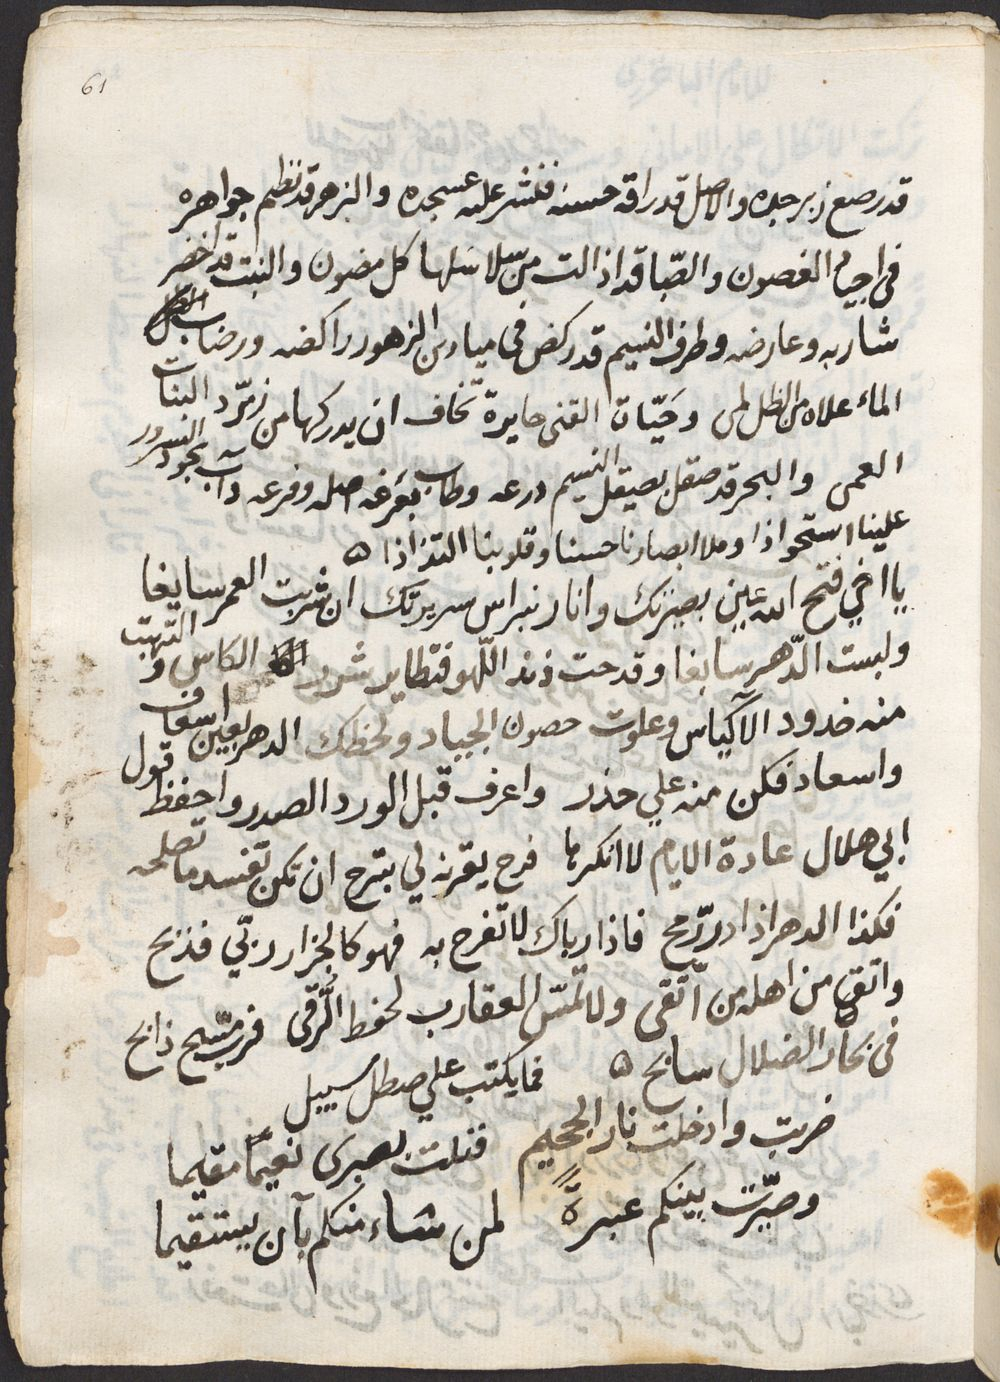 61
قد رصع زبرجده والاصل قد راق حسنه فنثر عليه عسجده والزهر قد نظم جواهره
في اجياد الغصون والصّبا قد اذالت من سلاسلها كل مصون والنبت قد اخضر
شاربه وعارضه وطرف النسيم قد ركض في ميادين الزهور راكضه ورضاب
الماء علاه من الظل لمى وحَيّات القنى حايرة تخاف ان يدركها من زمرّد النبات
العمى والبحر قد صقل بصيقل النسيم درعه وطاب بعَرفه اصله وفرعه وآب بجود السرور
علينا استحواذا وملا ابصارنا حسنا وقلوبنا التذاذا ه
يا اخي فتح الله عين بصيرتك وانار نبراس سريرتك ان شربت العمر سايغا
ولبست الدّهر سابغا وقدحت زند اللّهو فتطاير شرر الكاس والتهبت
منه خدود الاكياس وعلوت حصون الجياد ولحظك الدهر بعين اسعاف
واسعاد فكن منه علي حذر واعرف قبل الورد الصدر واحفظ قول
ابي هلال عادة الايام لا انكرها فرح يقرنه لي بترح ان تكن تفسد ما تصلحه
فكذا الدهر اذا درّ رمح فاذا رباك لا تفرح به فهو كالجزار ربّي فذبح
واتقي من اهله من اتّقى ولا تمسّ العقارب لحفظ الرّقى فرب مسّبح ذابح
في بحار الضلال سابح ه فما يكتب علي سطل سبيل
ضربت وادخلت نار الجحيم فنلت بصبري نعيمًا مقيما
وصيّرت بينكم عبرةً لمن شاء منكم بآن يستقيما